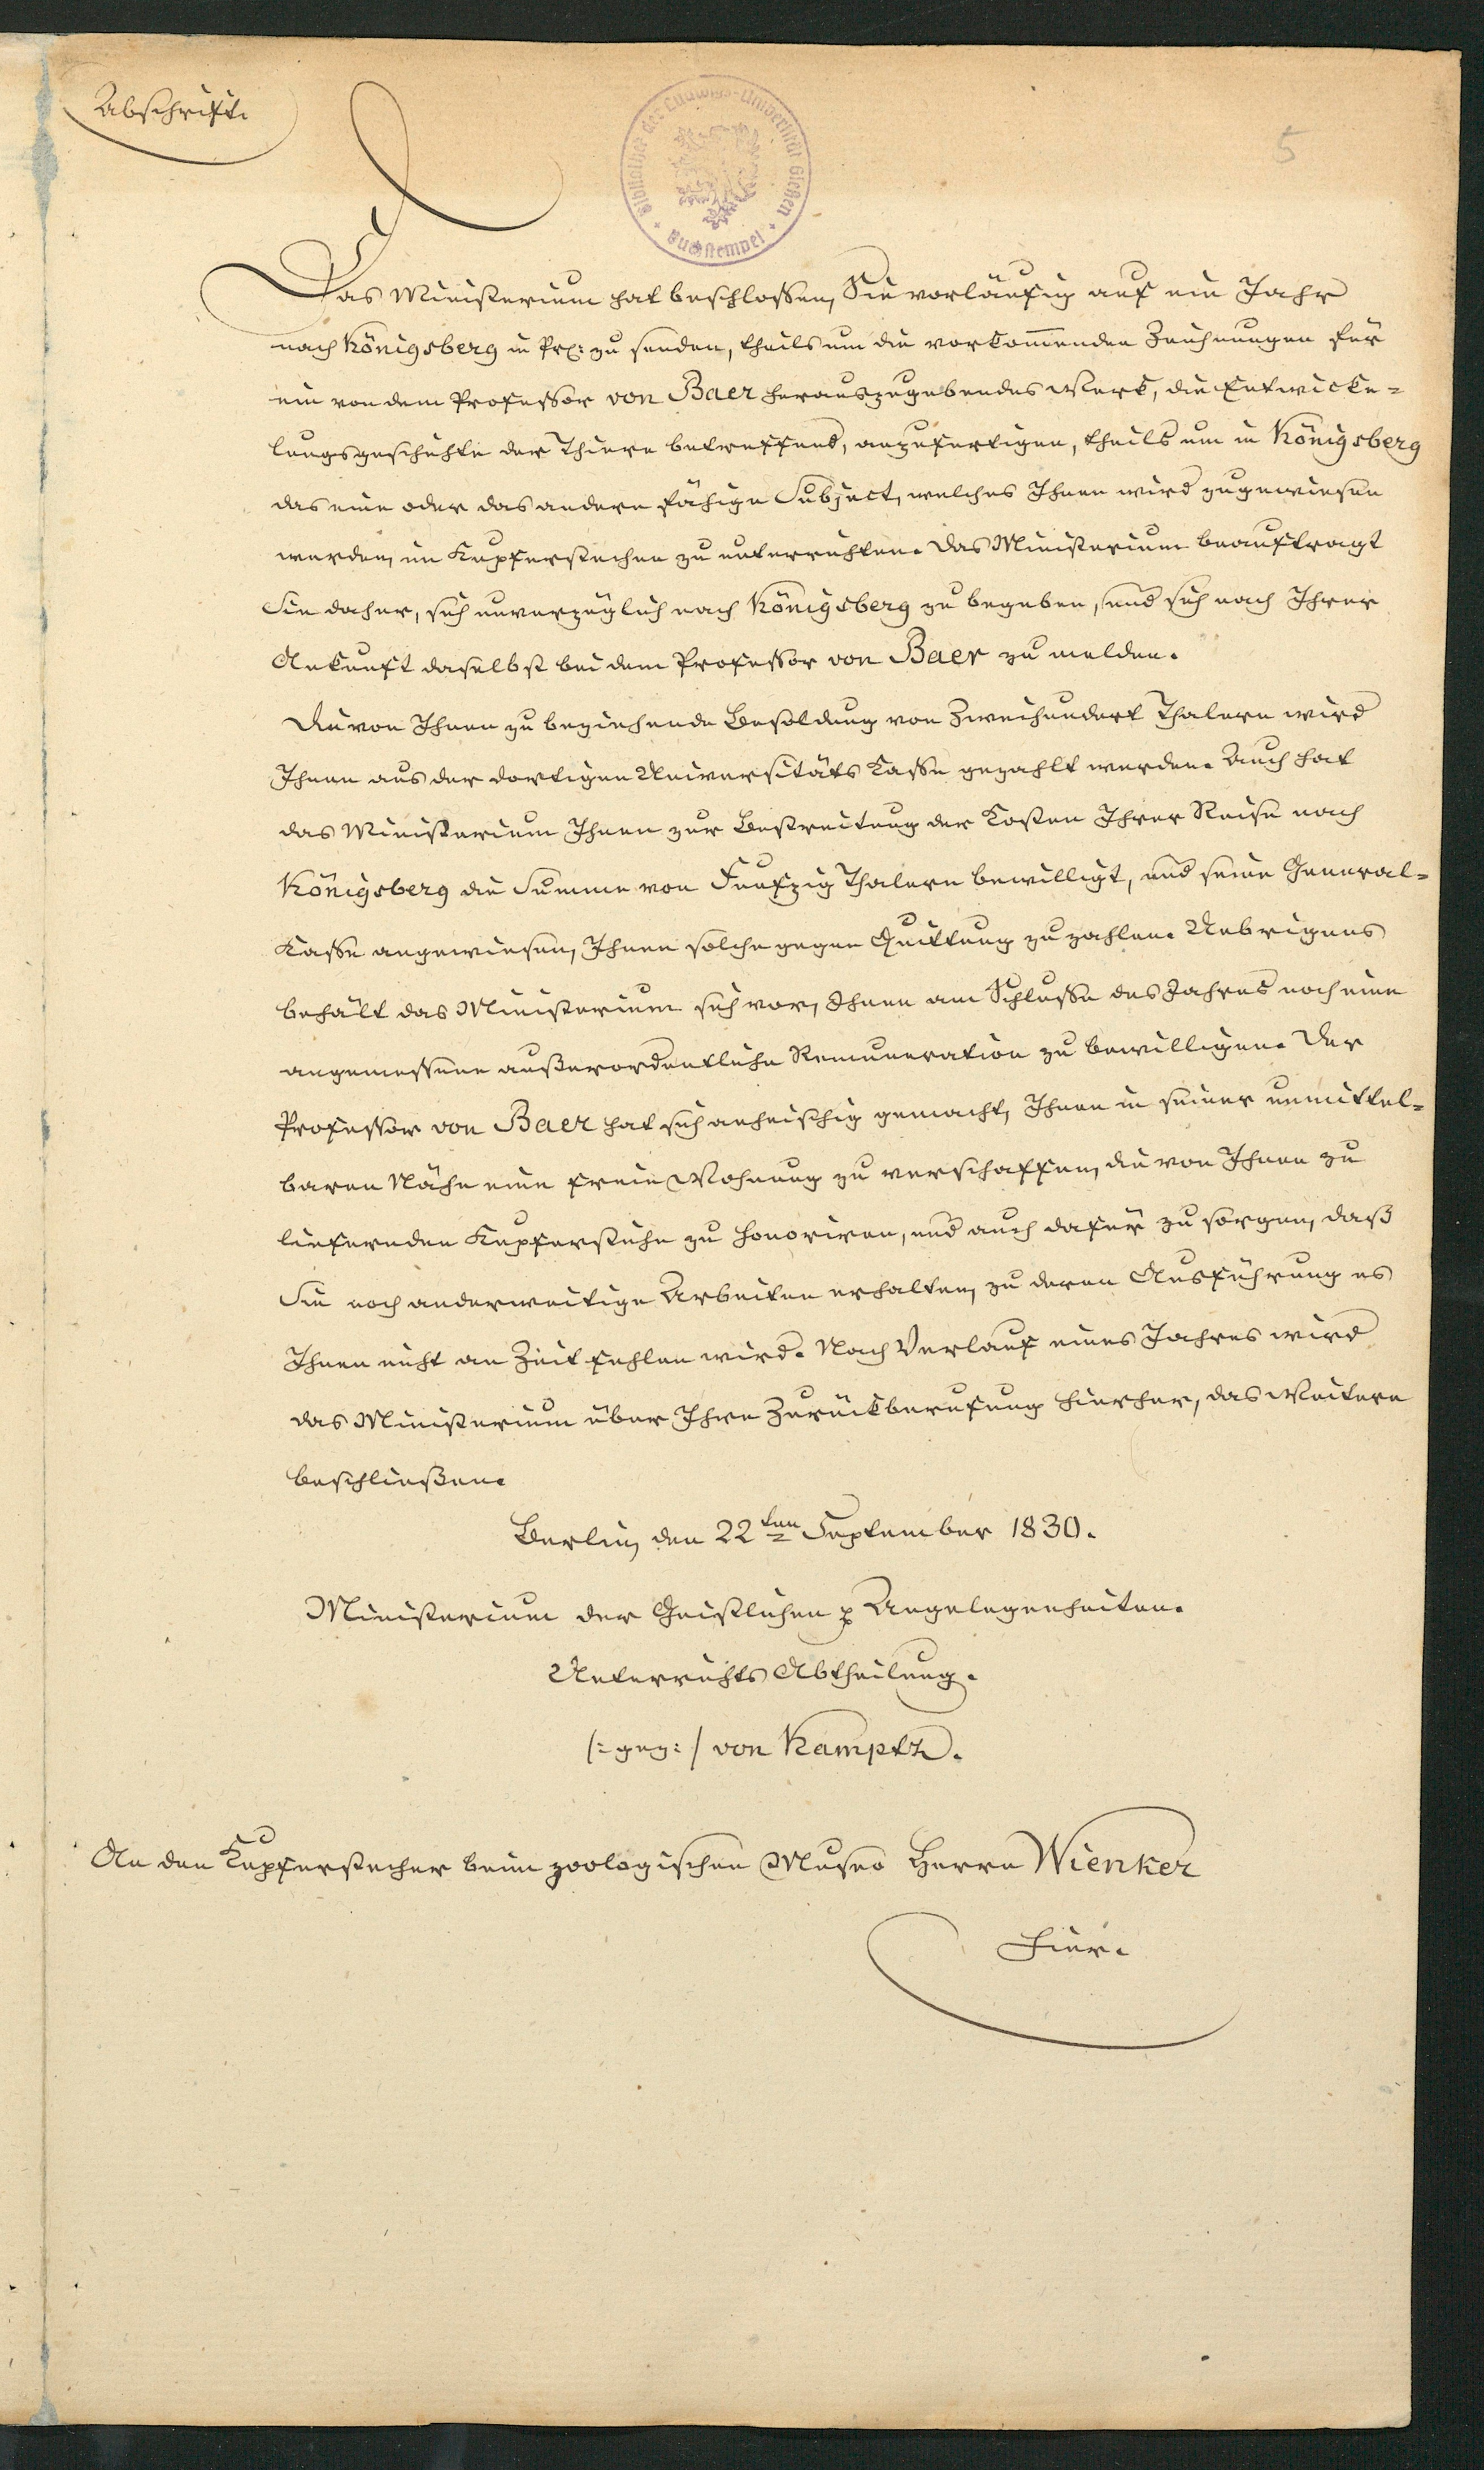 Abschrift.
Bibliothek der Ludwigs-Universität Gießen
Buchstempel
5
Das Ministerium hat beschlossen, Sie vorläufig auf ein Jahr
nach Königsberg in Pr: zu senden, theils um die vorkom̅enden Zeichnungen für
ein von dem Professor von Baer herauszugebendes Werk, die Entwicke-
lungsgeschichte der Thiere betreffend, anzufertigen, theils um in Königsberg
das eine oder das andere fähige Subject, welches Ihnen wird zugewiesen
werden, im Kupferstechen zu unterrichten. Das Ministerium beauftragt
Sie daher, sich unverzüglich nach Königsberg zu begeben, und sich nach Ihrer
Ankunft daselbst bei dem Professor von Baer zu melden.
Die von Ihnen zu beziehende Besoldung von Zweihundert Thalern wird
Ihnen aus der dortigen Universitäts Casse gezahlt werden. Auch hat
das Ministerium Ihnen zur Bestreitung der Kosten Ihrer Reise nach
Königsberg die Summe von Funfzig Thalern bewilligt, und seine General-
Kasse angewiesen, Ihnen solche gegen Quittung zu zahlen. Uebrigens
behält das Ministerium sich vor, Ihnen am Schlusse des Jahres noch eine
angemessene außerordentliche Remuneration zu bewilligen. Der
Professor von Baer hat sich anheischig gemacht, Ihnen in seiner unmittel-
baren Nähe eine freie Wohnung zu verschaffen, die von Ihnen zu
liefernden Kupferstiche zu honoriren, und auch dafür zu sorgen, daß
Sie noch anderweitige Arbeiten erhalten, zu deren Ausführung es
Ihnen nicht an Zeit fehlen wird. Nach Verlauf eines Jahres wird
das Ministerium über Ihre Zurückberufung hierher, das Weitere
beschließen.
Berlin, den 22ten September 1830.
Ministerium der Geistlichen p Angelegenheiten.
Unterrichts Abtheilung.
/:gez:/ von Kamptz.
An den Kupferstecher beim zoologischen Museo Herrn Wienker
Hier.